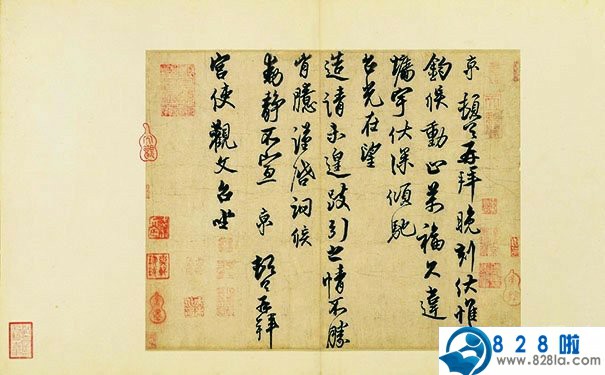 京 頓首再拜晚刻伏惟
鈞候動止萬福久違
墻宇伏深傾馳
台光在望
造請未遑跂引之情不勝
胸臆謹啓詞候
動靜不宣 京 頓首再拜
宮使觀文台坐
828啦
www.828la.com